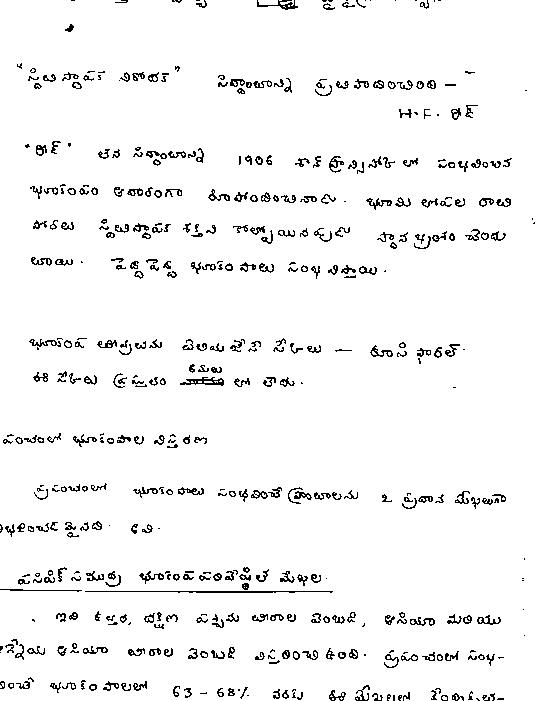 "స్థితిస్థాపక నిరోధక" సిద్ధాంతాన్ని ప్రతిపాదించింది —
H.F. రీడ్
"రీడ్" తన సిద్ధాంతాన్ని 1906 శాన్ ఫ్రాన్సిస్కో లో సంభవించిన
భూకంపం ఆధారంగా రూపొందించినాడు. భూమి లోపల రాతి
పొరలు స్థితిస్థాపక శక్తిని కోల్పోయినప్పుడు స్థాన భ్రంశం చెందు
తాయి. పెద్ద పెద్ద భూకంపాలు సంభవిస్తాయి.
భూకంప తీవ్రతను తెలియజేసే స్కేలు — రూసి ఫారల్.
ఈ స్కేలు ప్రస్తుతం అమలు లో లేదు.
పంచంలో భూకంపాల విస్తరణ
ప్రపంచంలో భూకంపాలు సంభవించే ప్రాంతాలను 2 ప్రధాన మేఖలుగా
విభజించడమైనది. అవి.
పసిఫిక్ సముద్ర భూకంప పరివేష్ఠిత మేఖల.
ఇది ఉత్తర, దక్షిణ పశ్చిమ తీరాల వెంబడి, ఆసియా మరియు
ఆగ్నేయ ఆసియా తీరాల వెంబడి విస్తరించి ఉంది. ప్రపంచంలో సంభ-
వించే భూకంపాలలో 63 - 68% వరకు ఈ మేఖలలో